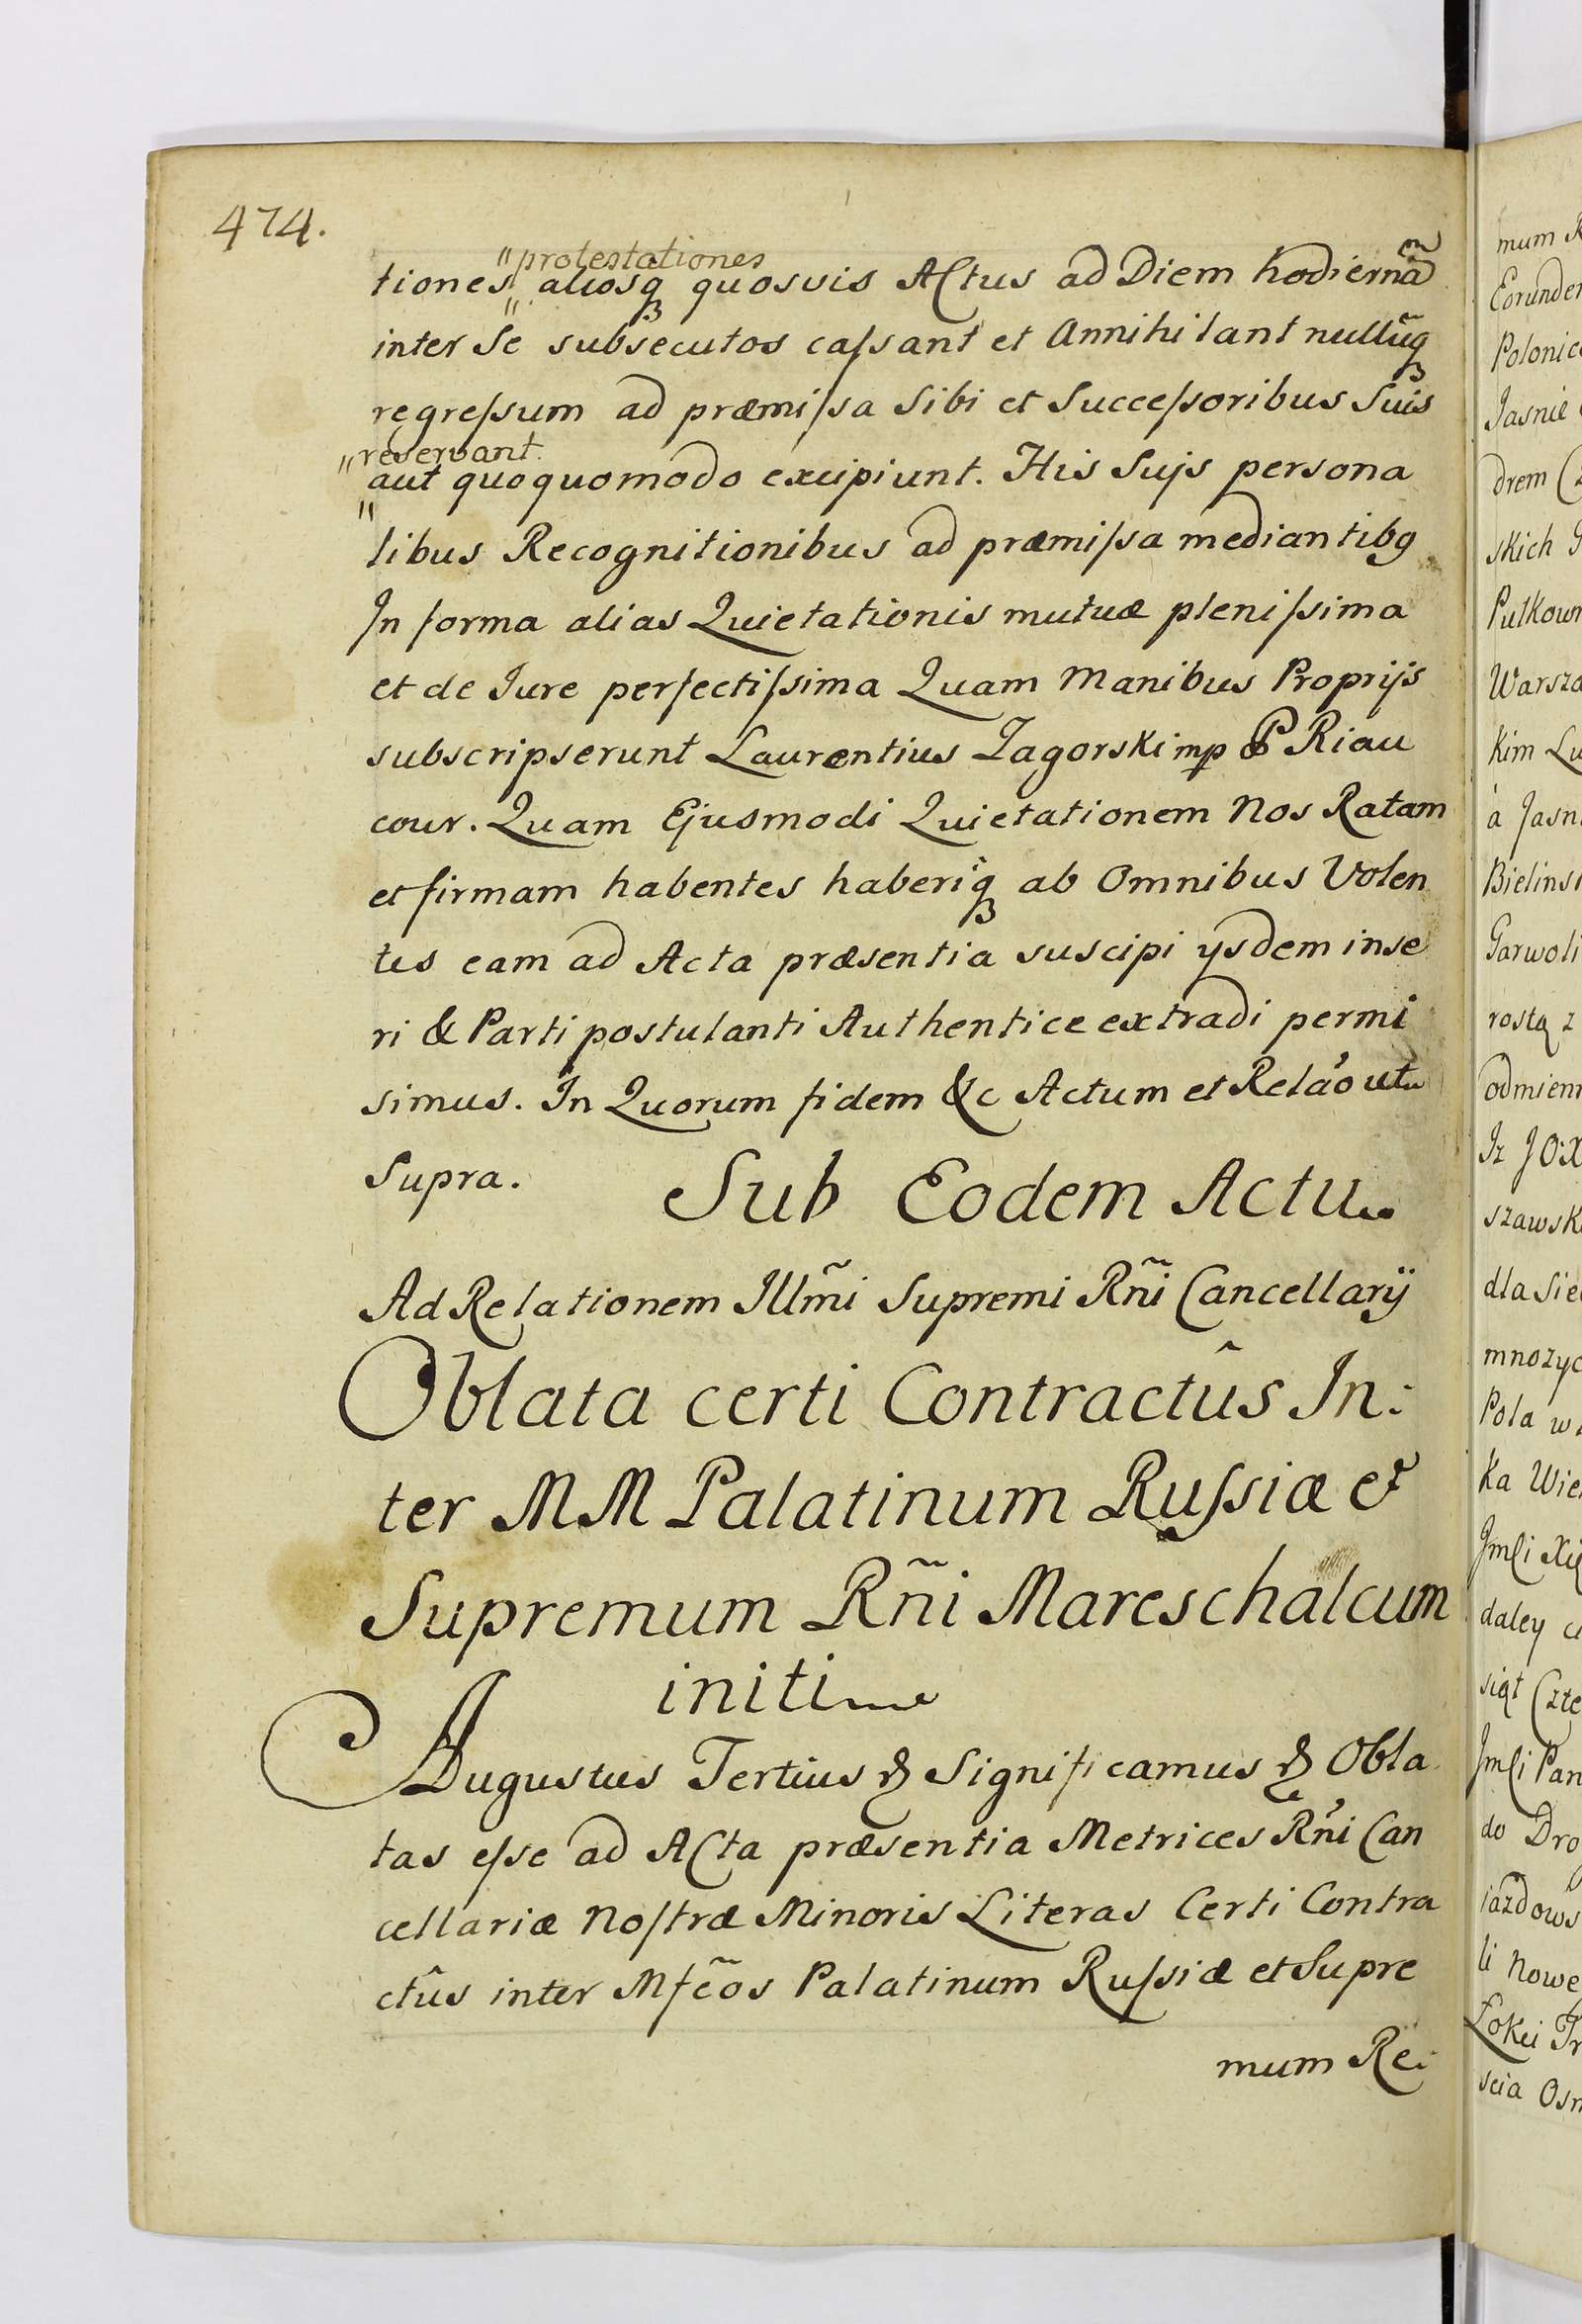 474.
"protestationes
tiones" aliosq quosvis Actus ad Diem hodiernã
inter Se subsecutos caſsant et Annihilant nullũq
regreſsum ad præmiſsa Sibi et Succeſsoribus Suis
"reservant.
aut quoquomodo excipiunt. His Suis persona
"
libus Recognitionibus ad præmiſsa mediantibq
In forma alias Quietationis mutuæ pleniſsima
et de Jure perfectiſsima Quam Manibus Proprijs
subscripserunt Laurentius Zagorski mp P Riau
cour. Quam Ejusmodi Quietationem Nos Ratam
et firmam habentes haberiq ab Omnibus Volen
tes eam ad Acta præsentia suscipi ysdem inse
ri & Parti postulanti Authentice extradi permi
simus. In Quorum fidem &c Actum et Relão ut
Supra.
Sub Eodem Actu
Ad Relationem Illm̃i Supremi Rñi Cancellarij
Oblata certi Contractûs In:
ter MM Palatinum Ruſsiæ et
Supremum Rñi Mareschalcum
initi
Augustus Tertius & Significamus & Obla
tas eſse ad Acta præsentia Metrices Rñi Can
cellariæ Noſtræ Minoris Literas Certi Contra
ctûs inter Mfc̃os Palatinum Ruſsiæ et Supre
mum Re:
mum R
Eorunde
Polonic
Jasnie
drem
skich
Pulkown
Warsza
kim Lu
à Jasn
Bielins
Garwoli
rostą z
odmien
Iz JO:X
szawsk
dla Sie
mnozyc
Pola w
ka Wie
Jmſi Xię
daley
siąt Czte
Jmſi Pan
do Dro
iazdows
li Nowe
Łokci Tr
scia Osm